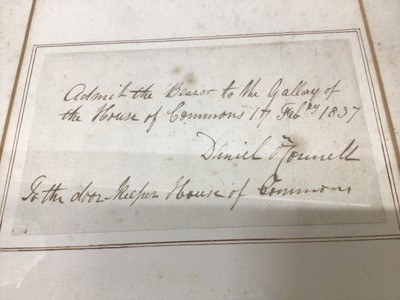 Admit the Bearer to the Gallery of
the House of Commons 17 Febry 1837
Daniel O'Connell
To the door-keeper House of Commons